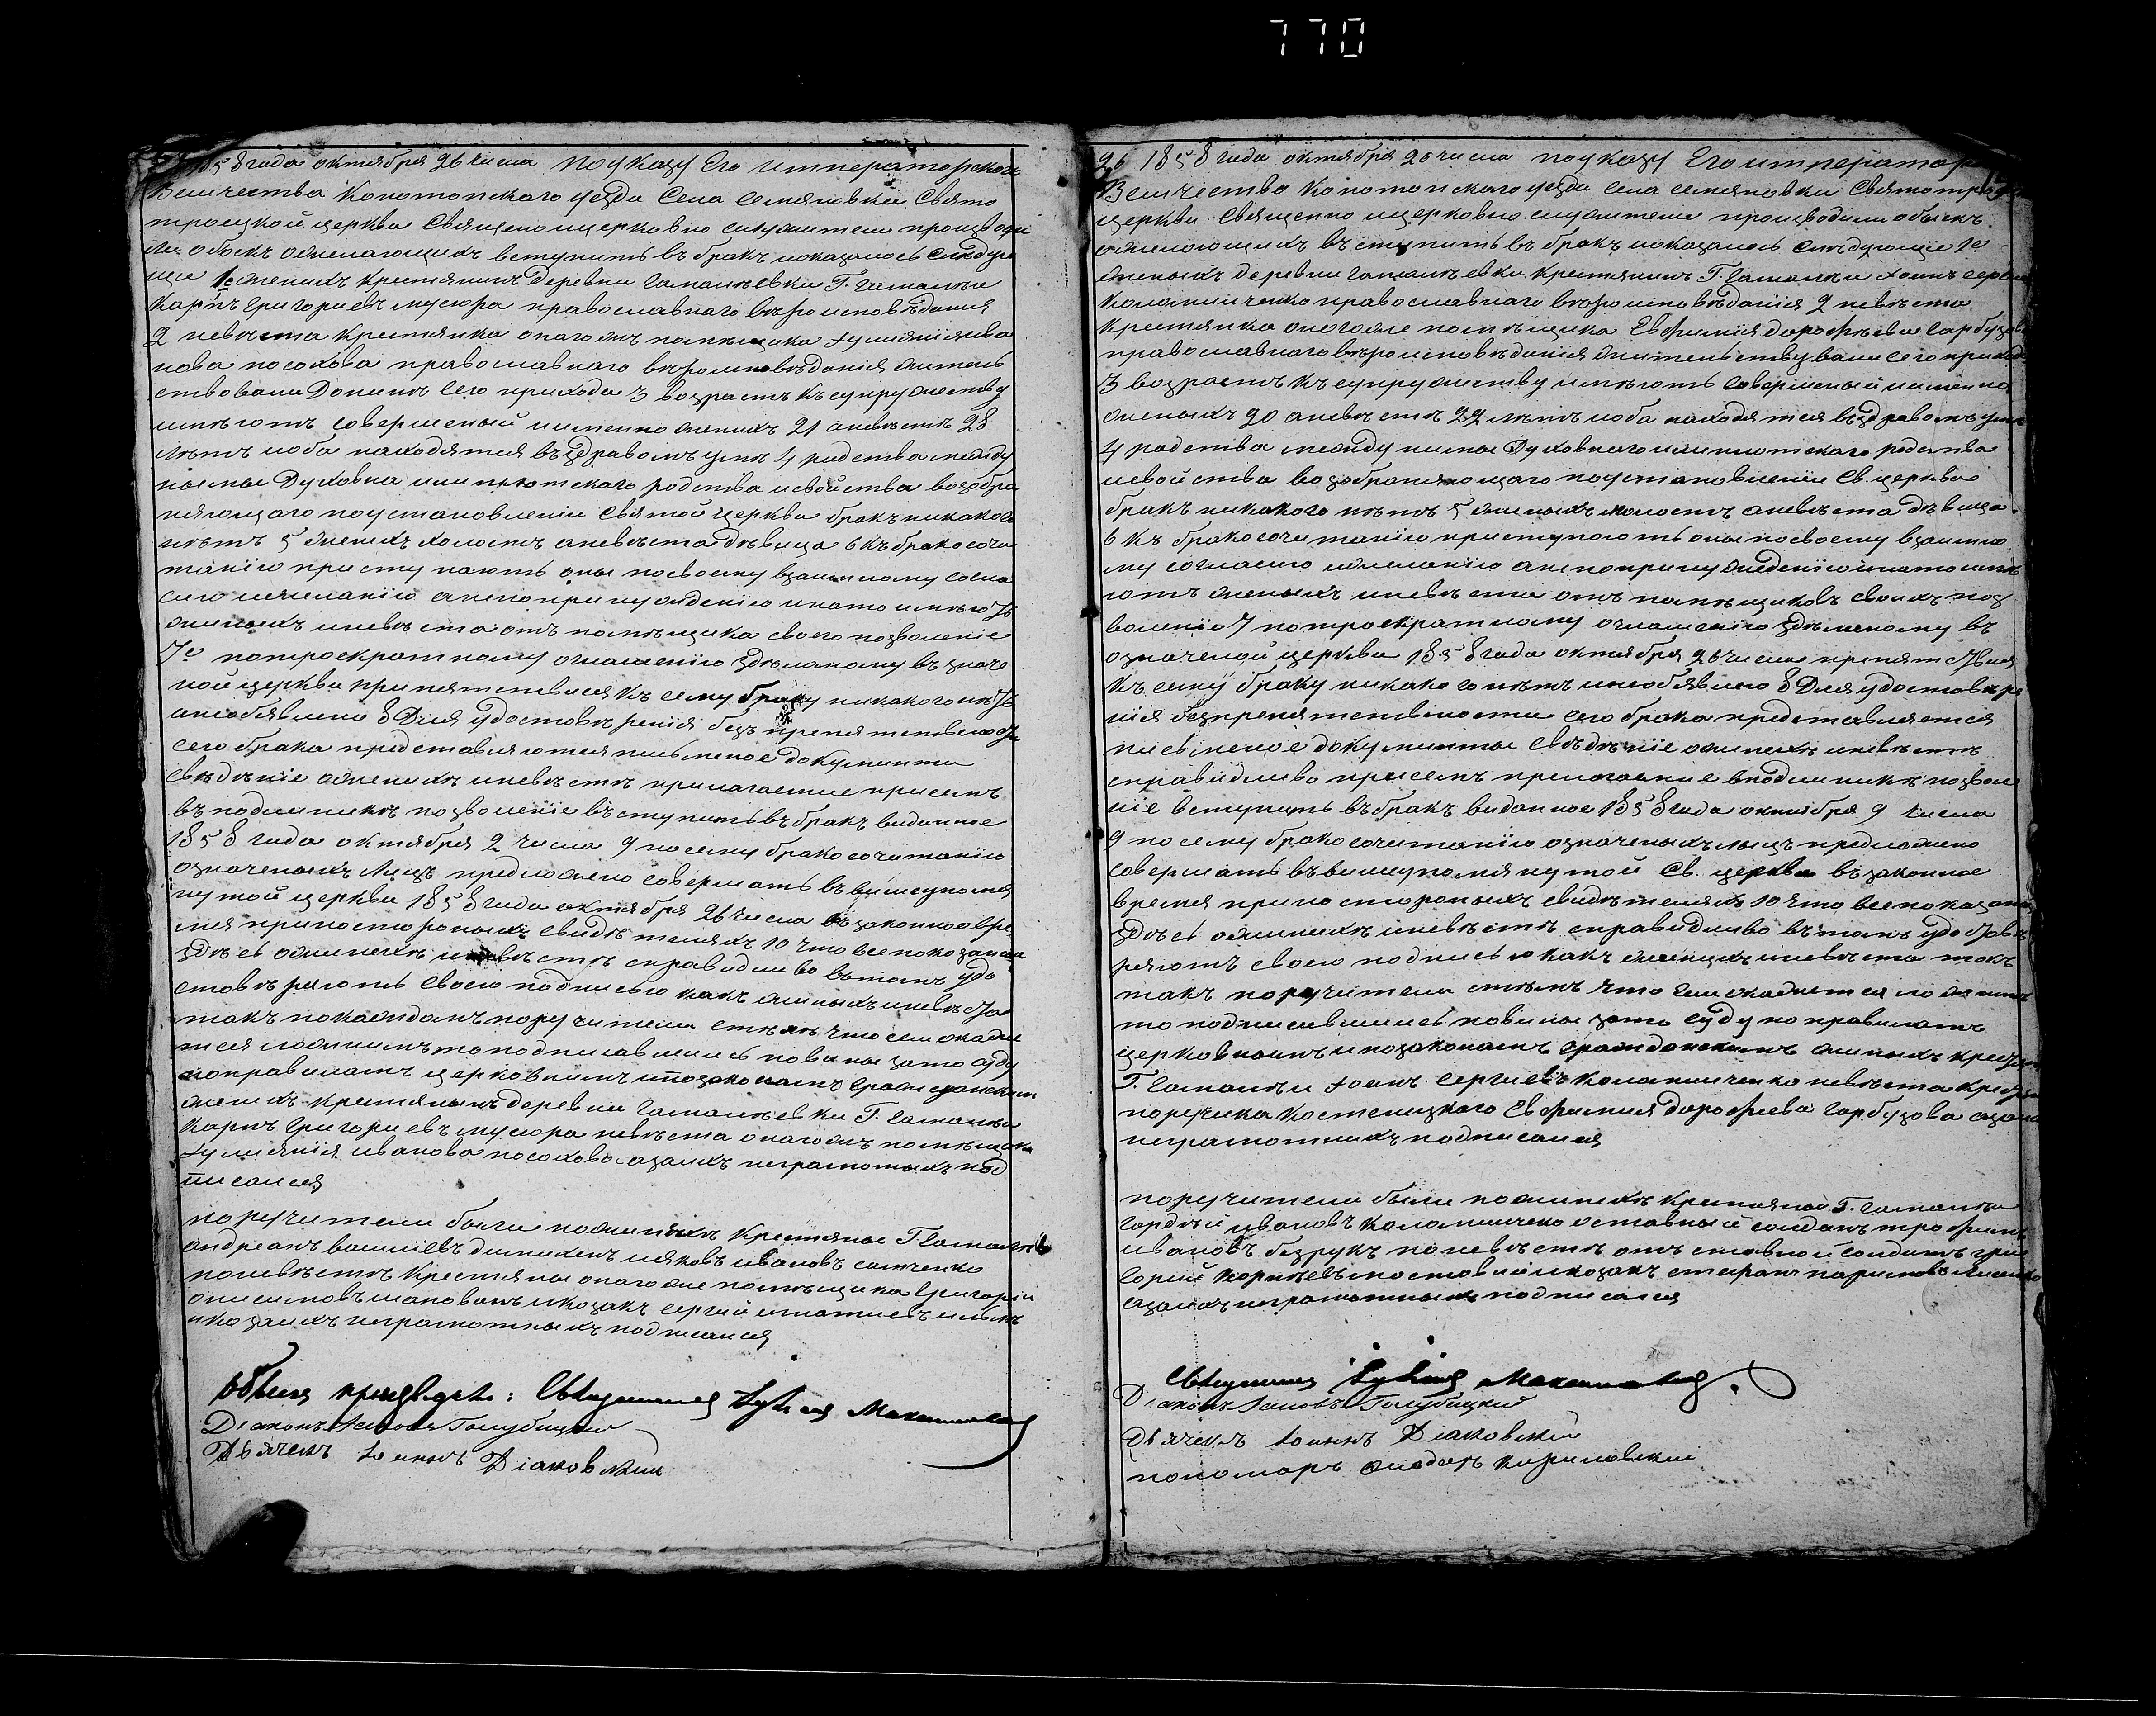 770
1858 года октября 26 числа по указу Его Императорского
Величества Конотопского уезда Села Семяновки Свято
троецкой церкви Священо ицерковно служители произвели
обыск ожелающихъ вступить въ бракъ иоказалось Следую
щее 1е женихъ крестянинъ деревни Гамалѣевки Г. Гамалѣи
Карпъ Григориевъ мусюра православнаго вѣроисповѣдания
2 невѣста Крестянка онагожъ помѣщика Иулиянія ива
нова посохова православнаго вѣроисповѣданія жители
ствовали Донинѣ Сего прихода 3 возрастъ къ супружеству
имѣютъ совершеный именно женихъ 21 аневѣста 28
лѣтъ иоба находятся въ здравомъ умѣ 4 родства между
ними Духовна или плотскаго родства исвойства возобра
няющаго поустановлении Святой церкви бракъ никакого
нѣтъ 5 женихъ холостъ аневѣста дѣвица 6 къ бракосоче
танию приступаютъ они посвоему взаимному согла
сию ижеланию анепопринуждению инато имѣютъ
женихъ иневѣста отъ помѣщика своего позволение
7е потроекратному оглашению здѣланому въ означе
ной церкви препятствия къ сему браку никакого нѣтъ
инеобявлено 8 Для удостовѣрения безъ препятствености
сего брака представляются писменое документы
Свѣдѣние оженихѣ иневѣстѣ прилагаемие присемъ
въ подлиникѣ позволение вступить въ бракъ виданное
1858 года октября 2 числа 9 посему бракосочетанию
означеныхъ Лицъ предложено совершать въ вишеупомя
нутой церкви 1858 года октября 26 числа въ законное вре
мя припосторонихъ свидѣтеляхъ 10 что все показаное
здѣсь оженихѣ иневѣстѣ справидливо вътомъ удо
стовѣряютъ Своею подписью какъ женихъ иневѣста
такъ покаждомъ поручители стѣмъ что если окаже
тся ложнимъ то подписавшиесь повины зато суду
поправиламъ церковнимъ ипозаконамъ гражданским
женихъ крестянинъ деревни Гамалѣевки Г. Гамалѣи
Карпъ Григориевъ мусюра невѣста онагожъ помѣщика
Иулиянія иванова посохова азаихъ неграмотныхъ под
писался
поручители были поженихѣ крестяне Г. Гамалѣи
андреанъ василиевъ иаковъ ивановъ
поневѣстѣ крестяне онаго же помѣщика Григорий
онисимовъ иказакъ сергий игнатиевъ
изаихъ неграмотныхъ подписался
обыскъ производилъ: Священникъ
Диаконъ Голубицкий
Дьячекъ Иоанъ Диаковский
26 1858 года октября 26 числа по указу Его император
Величества Конотопского уезда села семяновки Святотро
церкви Священно ицерковно служители производили обыскъ
ожелающихъ въступить въ бракъ иоказалось слѣдующе 1е
женихъ деревни гамалѣевки крестянинъ Г. Гамалѣи Иоанъ
православнаго вѣроисповѣдания 2 невѣста
крестянка онагоже помѣщика Евфимия дорофѣева гарбузова
православнаго вѣроисповѣдания жительствувалисего приход
3 возрастъ къ супружеству имѣютъ совершеный именно
женихъ 20 аневѣста 22 лѣтъ иоба находятся въздравомъ умѣ
4 родства между ними Духовнаго илиплотскаго родства
исвойства возобраняющаго поустановлении Св. церкви
бракъ никакого нѣтъ 5 женихъ холостъ аневѣста дѣвица
6 къ бракосочетанию приступаютъ они посвоему взаимно
му согласию ижеланию анепопринуждению инато имѣ
ютъ женихъ иневѣста отъ помѣщиковъ своихъ поз
воление 7 потроекратному оглашению здѣланому въ
означеной церкви 1858 года октября 26 числа препятствия
къ сему браку никакого нѣтъ инеобявлено 8 Для удостовѣре
ния безпрепятствености сего брака представляется
писменое документы свѣдѣние оженихѣ иневѣстѣ
справидливо присемъ прилогаемие вподлиникѣ позволе
ние вступить въ бракъ виданное 1858 года октября 9 числа
9 посему бракосочетанию означеныхъ лицъ предложено
совершать въ вишеупомянутой Св. церкви въ законное
время припосторонихъ свидѣтеляхъ 10 что все показаное
здѣсь оженихѣ иневѣстѣ справидливо вътомъ удостовѣ
ряютъ своею подписью какъ женихъ иневѣста такъ
такъ поручители стѣмъ что если окажется ложнимъ
то подписавшиесь повины зато суду поправиламъ
церковнымъ ипозаконамъ гражданскимъ женихъ
Г. Гамалѣи Иоанъ Сергиевъ невѣста
поручика Костенецкого Евфимия дорофиева гарбузова
неграмотнихъ подписался
поручители были поженихѣ крестяне Г. Гамалѣи
гордѣй ивановъ отставный солдатъ трофимъ
ивановъ безрукъ поневѣстѣ отставной солдатъ гри
горий иказакъ
азаихъ неграмотныхъ подписался
Священникъ
Диаконъ Голубицкий
Дьячекъ Иоанъ Диаковский
пономарь Кириловский